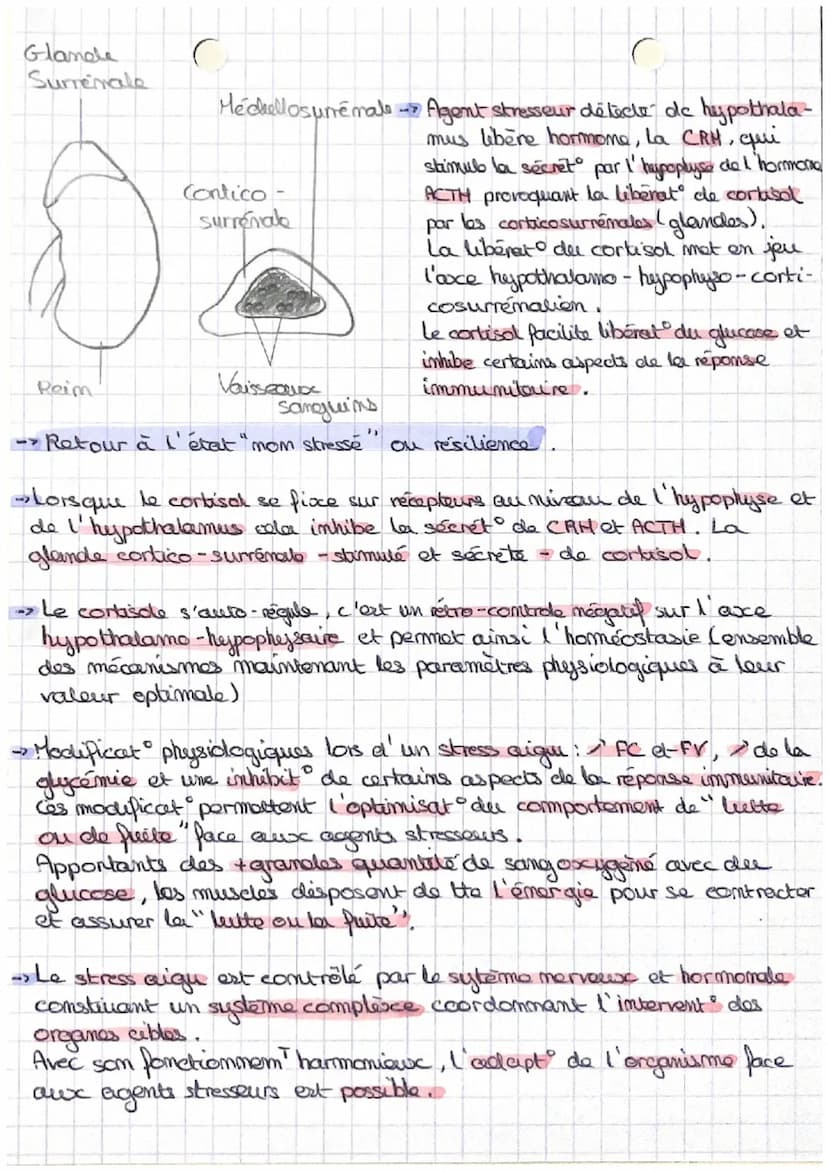 Glande
Surrénale
Médullosurrénale
Cortico -
surrénale
Rein
Vaisseaux
sanguins
-> Agent stresseur détecté de hypothala-
mus libère hormone, la CRH, qui
stimule la sécrét° par l'hypophyse de l'hormone
ACTH provoquant la libérat° de cortisol
par les corticosurrénales (glandes).
La libérat° du cortisol met en jeu
l'axe hypothalamo - hypophyso - corti-
cosurrénalien.
Le cortisol facilite libérat° du glucose et
inhibe certains aspects de la réponse
immunitaire.
-> Retour à l'état "non stressé" ou résilience.
-> Lorsque le cortisol se fixe sur récepteurs au niveau de l'hypophyse et
de l'hypothalamus cela inhibe la sécrét° de CRH et ACTH. La
glande cortico-surrénale - stimulé et sécrète - de cortisol.
-> Le cortisole s'auto-régule, c'est un rétro-controle négatif sur l'axe
hypothalamo-hypophysaire et permet ainsi l'homéostasie (ensemble
des mécanismes maintenant les paramètres physiologiques à leur
valeur optimale)
-> Modificat° physiologiques lors d'un stress aigu : ↗ FC et FV, ↗ de la
glycémie et une inhibit° de certains aspects de la réponse immunitaire.
Ces modificat° permettent l'optimisat° du comportement de "lutte
ou de fuite" face aux agents stresseurs.
Apportants des + grandes quantité de sang oxygéné avec du
glucose, les muscles disposent de tte l'énergie pour se contracter
et assurer la "lutte ou la fuite".
-> Le stress aigu est contrôlé par le sytème nerveux et hormonale
constituant un système complexe coordonnant l'intervent° des
organes cibles.
Avec son fonctionnemT harmonieux, l'adapt° de l'organisme face
aux agents stresseurs est possible.